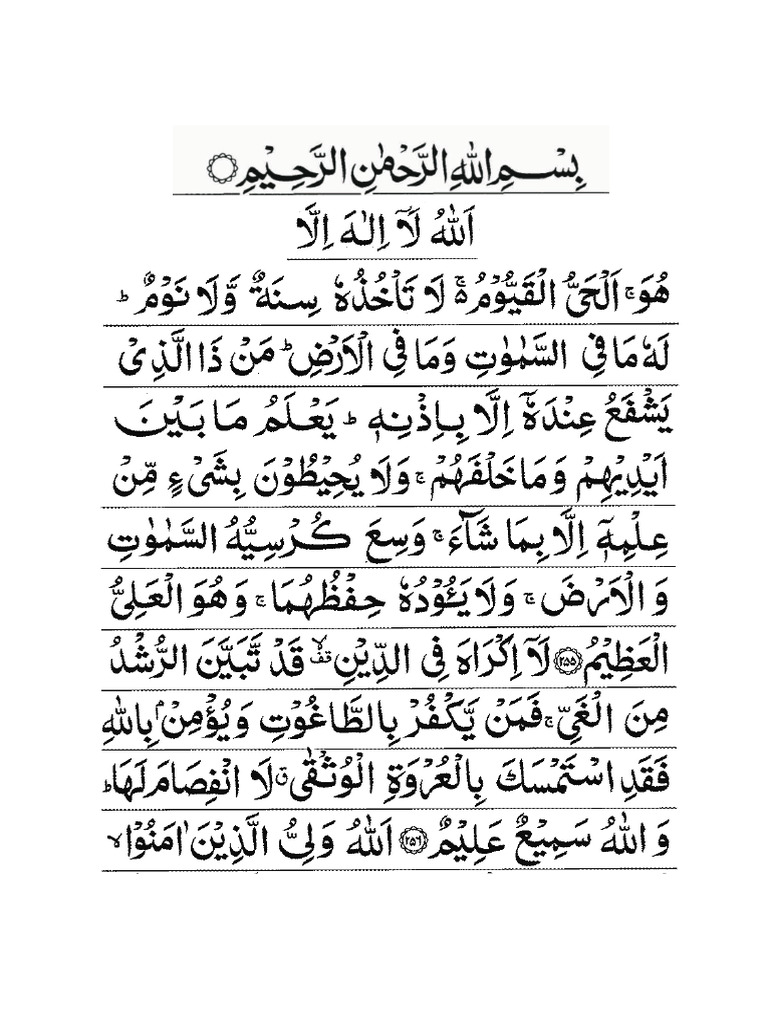 بِسْمِ اللهِ الرَّحْمٰنِ الرَّحِيْمِ ۝
اَللهُ لَآ اِلٰهَ اِلَّا
هُوَ ۚ اَلْحَىُّ الْقَيُّوْمُ ۚ۬ لَا تَاْخُذُهٗ سِنَةٌ وَّلَا نَوْمٌ ؕ
لَهٗ مَا فِى السَّمٰوٰتِ وَمَا فِى الْاَرْضِ ؕ مَنْ ذَا الَّذِىْ
يَشْفَعُ عِنْدَهٗٓ اِلَّا بِاِذْنِهٖ ؕ يَعْلَمُ مَا بَيْنَ
اَيْدِيْهِمْ وَمَا خَلْفَهُمْ ۚ وَلَا يُحِيْطُوْنَ بِشَىْءٍ مِّنْ
عِلْمِهٖٓ اِلَّا بِمَا شَآءَ ۚ وَسِعَ كُرْسِيُّهُ السَّمٰوٰتِ
وَالْاَرْضَ ۚ وَلَا يَـُٔوْدُهٗ حِفْظُهُمَا ۚ وَهُوَ الْعَلِىُّ
الْعَظِيْمُ ۝۲۵۵ لَآ اِكْرَاهَ فِى الدِّيْنِ ۙقف قَدْ تَّبَيَّنَ الرُّشْدُ
مِنَ الْغَىِّ ۚ فَمَنْ يَّكْفُرْ بِالطَّاغُوْتِ وَيُؤْمِنْۢ بِاللهِ
فَقَدِ اسْتَمْسَكَ بِالْعُرْوَةِ الْوُثْقٰى ق لَا انْفِصَامَ لَهَا ؕ
وَاللهُ سَمِيْعٌ عَلِيْمٌ ۝۲۵۶ اَللهُ وَلِىُّ الَّذِيْنَ اٰمَنُوْا ۙ